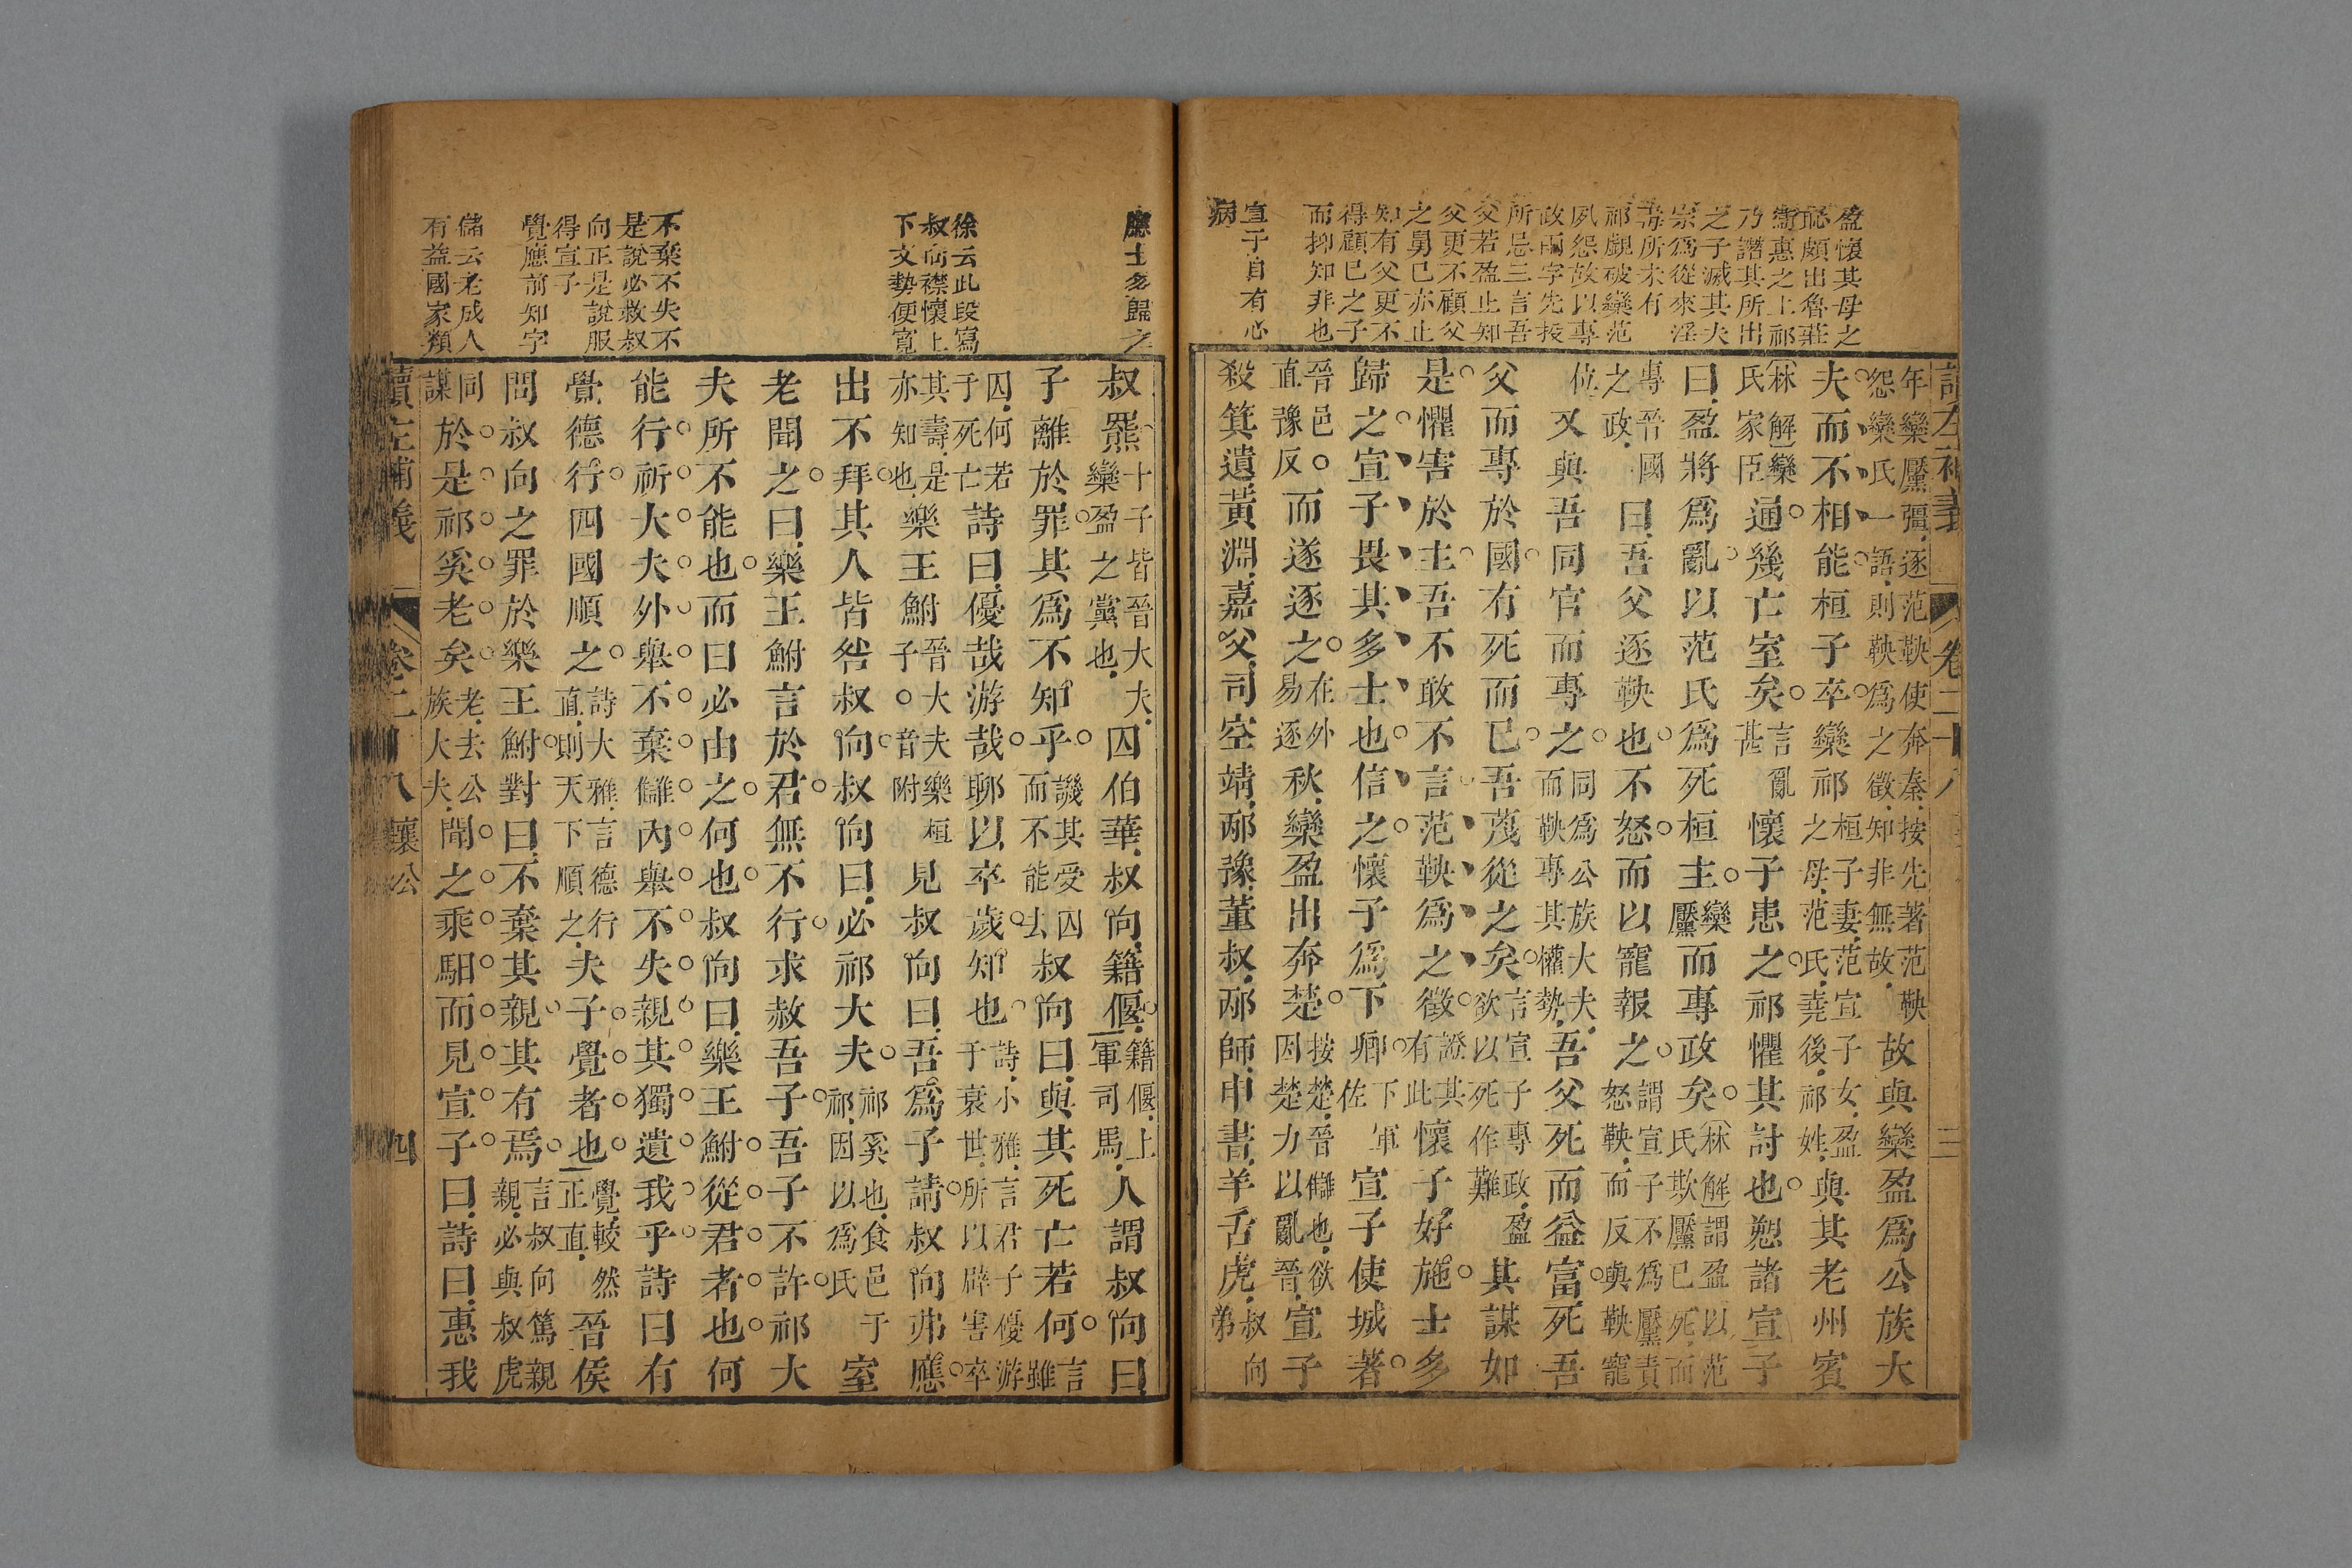 盈懷其母之
惡頗出魯莊
喬惠之上祁
乃譖其所出
之子滅其夫
宗爲從來淫
毒所未有
祁覷破欒范
夙怨故以專
政兩字先授
所忌三言吾
父若盈止知
父更不顧父
之舅已亦止
知有父更不
得顧已之子
而抑知非也
宣子自有心
病
讀左補義 卷二十八 三
年欒黶彊逐范鞅使奔秦按先著范鞅
怨欒氏一語則鞅爲之徵知非無故故與欒盈爲公族大
夫而不相能桓子卒欒祁桓子妻范宣子女盈之母范氏堯後祁姓與其老州賓
林解欒氏家臣通幾亡室矣言亂甚懷子患之祁懼其討也愬諸宣子
曰盈將爲亂以范氏爲死桓主欒黶而專政矣林解謂盈以范氏欺黶已死而
專晉國之政曰吾父逐鞅也不怒而以寵報之謂宣子不爲黶責怒鞅而反與鞅寵
位又與吾同官而專之同爲公族大夫而鞅專其權勢吾父死而益富死吾
父而專於國有死而已吾蔑從之矣言宣子專政盈欲以死作難其謀如
是懼害於主吾不敢不言范鞅爲之徵證其有此懷子好施士多
歸之宣子畏其多士也信之懷子爲下卿下軍佐宣子使城著
晉邑直豫反而遂逐之在外易逐秋欒盈出奔楚按楚晉讎也欲因楚力以亂晉宣子
殺箕遺黃淵嘉父司空靖邴豫董叔邴師申書羊舌虎叔向弟
應士多歸之
徐云此段寫
叔向襟懷上
下文勢便寬
不棄不失不
是說必救叔
向正是說服
得宣子
覺應前知字
儲云老成人
有益國家類
叔羆十子皆晉大夫欒盈之黨也囚伯華叔向籍偃籍偃上軍司馬人謂叔向曰
子離於罪其爲不知乎譏其受囚而不能去叔向曰與其死亡若何言雖
囚何若于死亡詩曰優哉游哉聊以卒歲知也詩小雅言君子優游于衰世所以辟害卒
其壽是亦知也樂王鮒晉大夫樂桓子音附見叔向曰吾爲子請叔向弗應
出不拜其人皆咎叔向叔向曰必祁大夫祁奚也食邑于祁因以爲氏室
老聞之曰樂王鮒言於君無不行求赦吾子吾子不許祁大
夫所不能也而曰必由之何也叔向曰樂王鮒從君者也何
能行祈大夫外舉不棄讎內舉不失親其獨遺我乎詩曰有
覺德行四國順之詩大雅言德行直則天下順之夫子覺者也覺較然正直晉侯
問叔向之罪於樂王鮒對曰不棄其親其有焉言叔向篤親親必與叔虎
同謀於是祁奚老矣老去公族大夫聞之乘馹而見宣子曰詩曰惠我
讀左補義 卷二十八 襄公 四